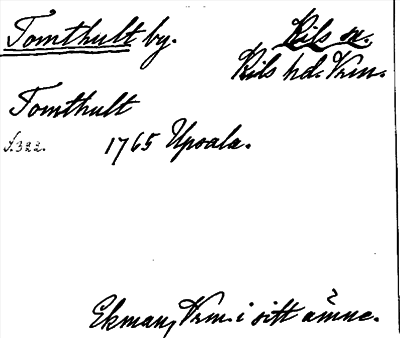 Tomthult by. Kils sn.
Kils hd. Vrm.
Tomthult
s.322. 1765 Upsala.
Ekman, Vrm. i sitt ämne.